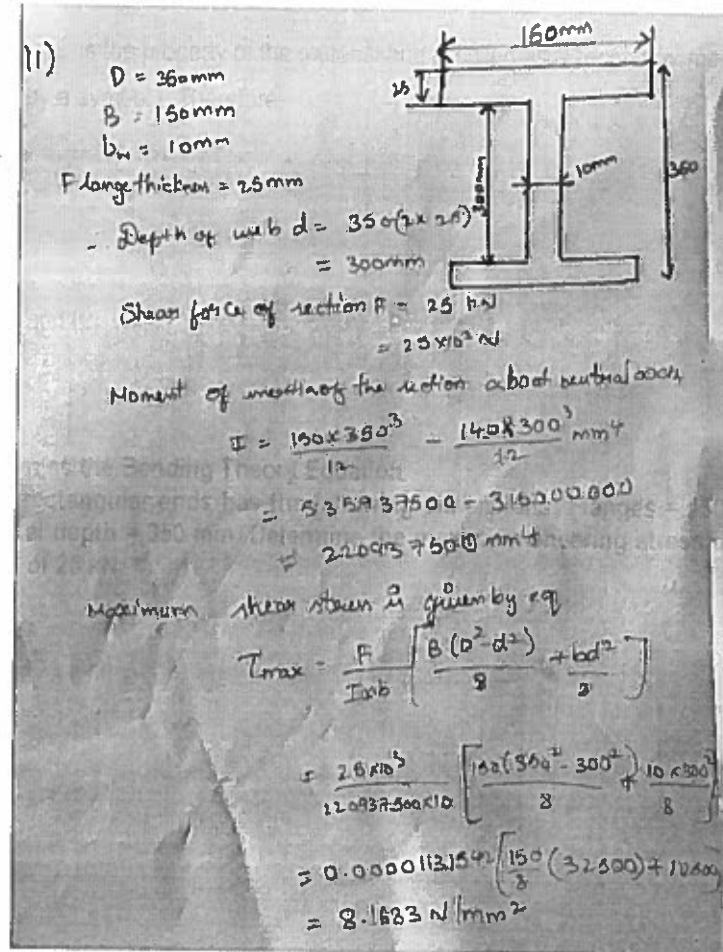 11)
D = 350mm
B = 150mm
bw = 10mm
Flange thickness = 25mm
Depth of web d = 350-(2x25)
= 300mm
Shear force of section F = 25 kN
= 25x10³ N
Moment of inertia of the section about neutral axis
I = 150x350³/12 - 140x300³/12 mm⁴
= 535937500 - 315000000
= 220937500 mm⁴
Maximum shear stress is given by eq
Tmax = F/Ixb [B(D²-d²)/8 + bd²/8]
= 25x10³/220937500x10 [150(350²-300²)/8 + 10x300²/8]
= 0.0000113.1542 [150/8 (32500) +
= 8.1633 N/mm²
150mm
25
300mm
10mm
350
the Bending Theory Equation